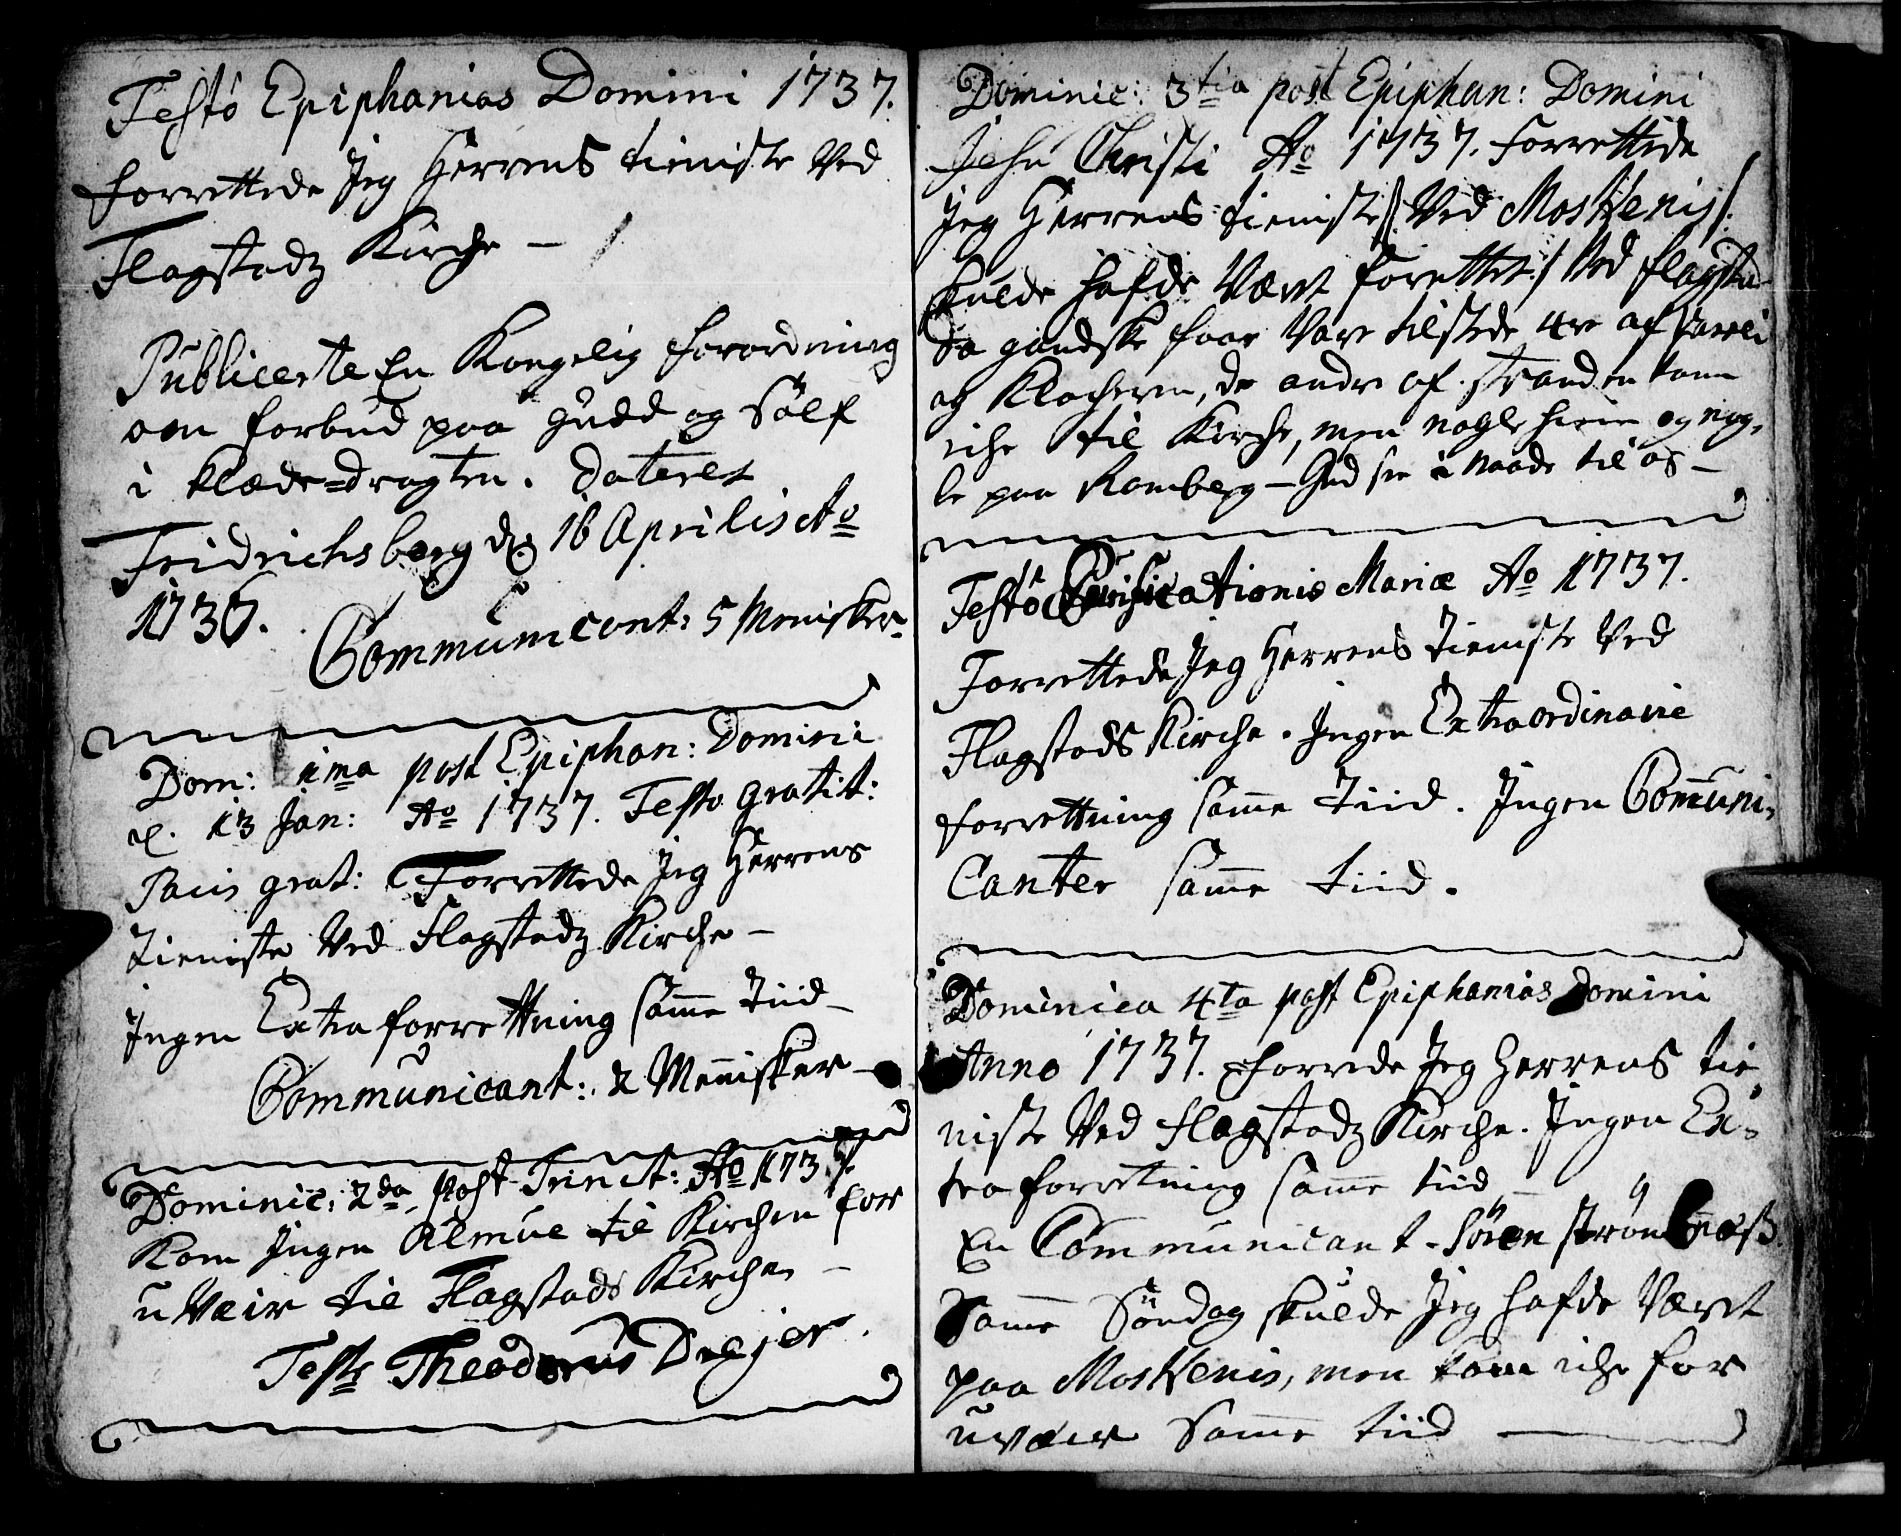 Festo Epiphanias Domini 1737.
forrettede Jeg Herrens tieniste Ved
Flagstadz Kirche —
Publicerte En Kongelig forordning
om forbud paa Guld og Sölf
i Klæde=dragten. Dateret
Fridrichsberg d. 16 Aprilis Ao
1736.
Communicant: 5 Menisker.
Dom: 1ma post Epiphan: Domini
d. 13 Jan: Ao 1737. Festo gratit:
Pacis grat: Forrettede Jeg Herrens
tieniste Ved Flagstadz Kirche —
Ingen Extra forrettning samme Tiid —
Communicant: 2 Menisker —
Dominic: 2da post Trinit: Ao 1737
Kom Ingen Almue til Kirchen for
u Veir til Flagstads Kirche —
Teste Theodorus Drejer.
Dominic: 3tia post Epiphan: Domini
Jesu Christi Ao 1737. forrettede
Jeg Herrens tieniste /: Ved Moskenis /:
skulde hafde Været forettet :/ Ved flagsta
da gandske faae Vare tilstede 4re af
og Klocheren, de andre af stranden kom
iche til Kirche, men nogle hiem og nog,
le paa Ramberg — Gud see i Naade til os —
Festo Purificationis Mariæ Ao 1737.
Forrettede Jeg Herrens Tieniste Ved
Flagstads Kirche. Ingen Extraordinarie
forrettning samme Tiid. Ingen Communi,
Canter samme tiid.
Dominica 4ta post Epiphanias Domini
Anno 1737. forrede Jeg Herrens tie,
niste Ved Flagstadz Kirche. Ingen Ex=
tra forretning samme tiid —
En Communicant - Sören
Samme Söndag skulde Jeg hafde Været
paa Moskenis, men kom iche for
uvæir Samme tiid —